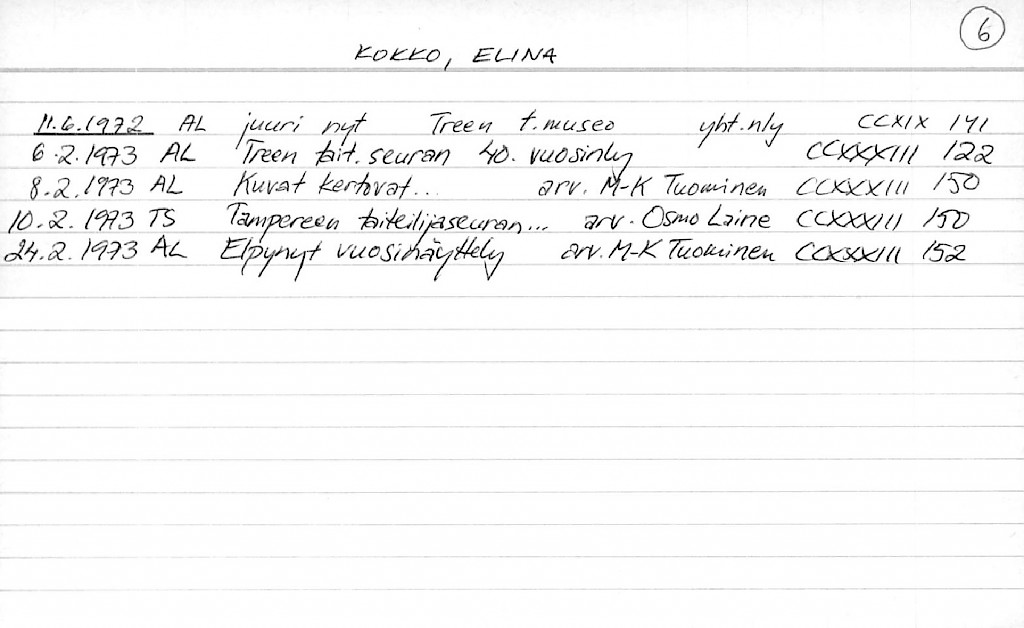 6
KOKKO, ELINA
11.6.1972 AL juuri nyt Treen t.museo yht.nly CCXIX 141
6.2.1973 AL Treen tait. seuran 40. vuosinly CCXXXIII 122
8.2.1973 AL Kuvat kertovat... arv. M-K Tuominen CCXXXIII 150
10.2.1973 TS Tampereen taiteilijaseuran... arv. Osmo Laine CCXXXIII 150
24.2.1973 AL Elpynyt vuosinäyttely arv. M-K Tuominen CCXXXIII 152